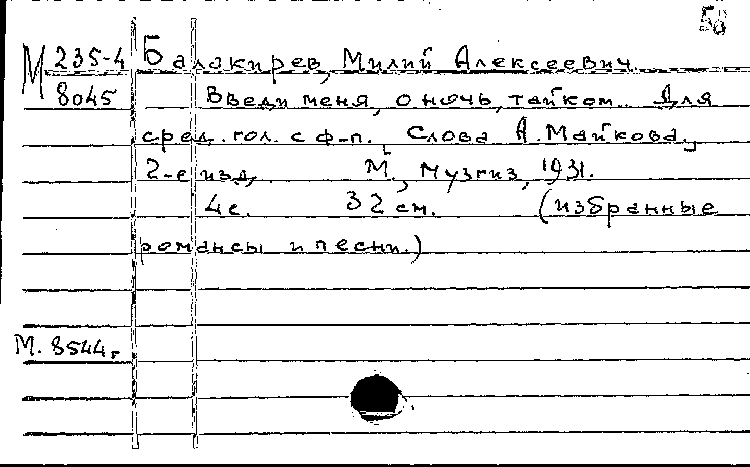 58
М 235-4 Балакирев, Милий Алексеевич.
8045 Введи меня, о ночь, тайком. Для
сред. гол. с ф-п. Слова А. Майкова.
2-е изд, М., Музгиз, 1931.
4с. 32 см. (избранные
романсы и песни.)
М. 8544г